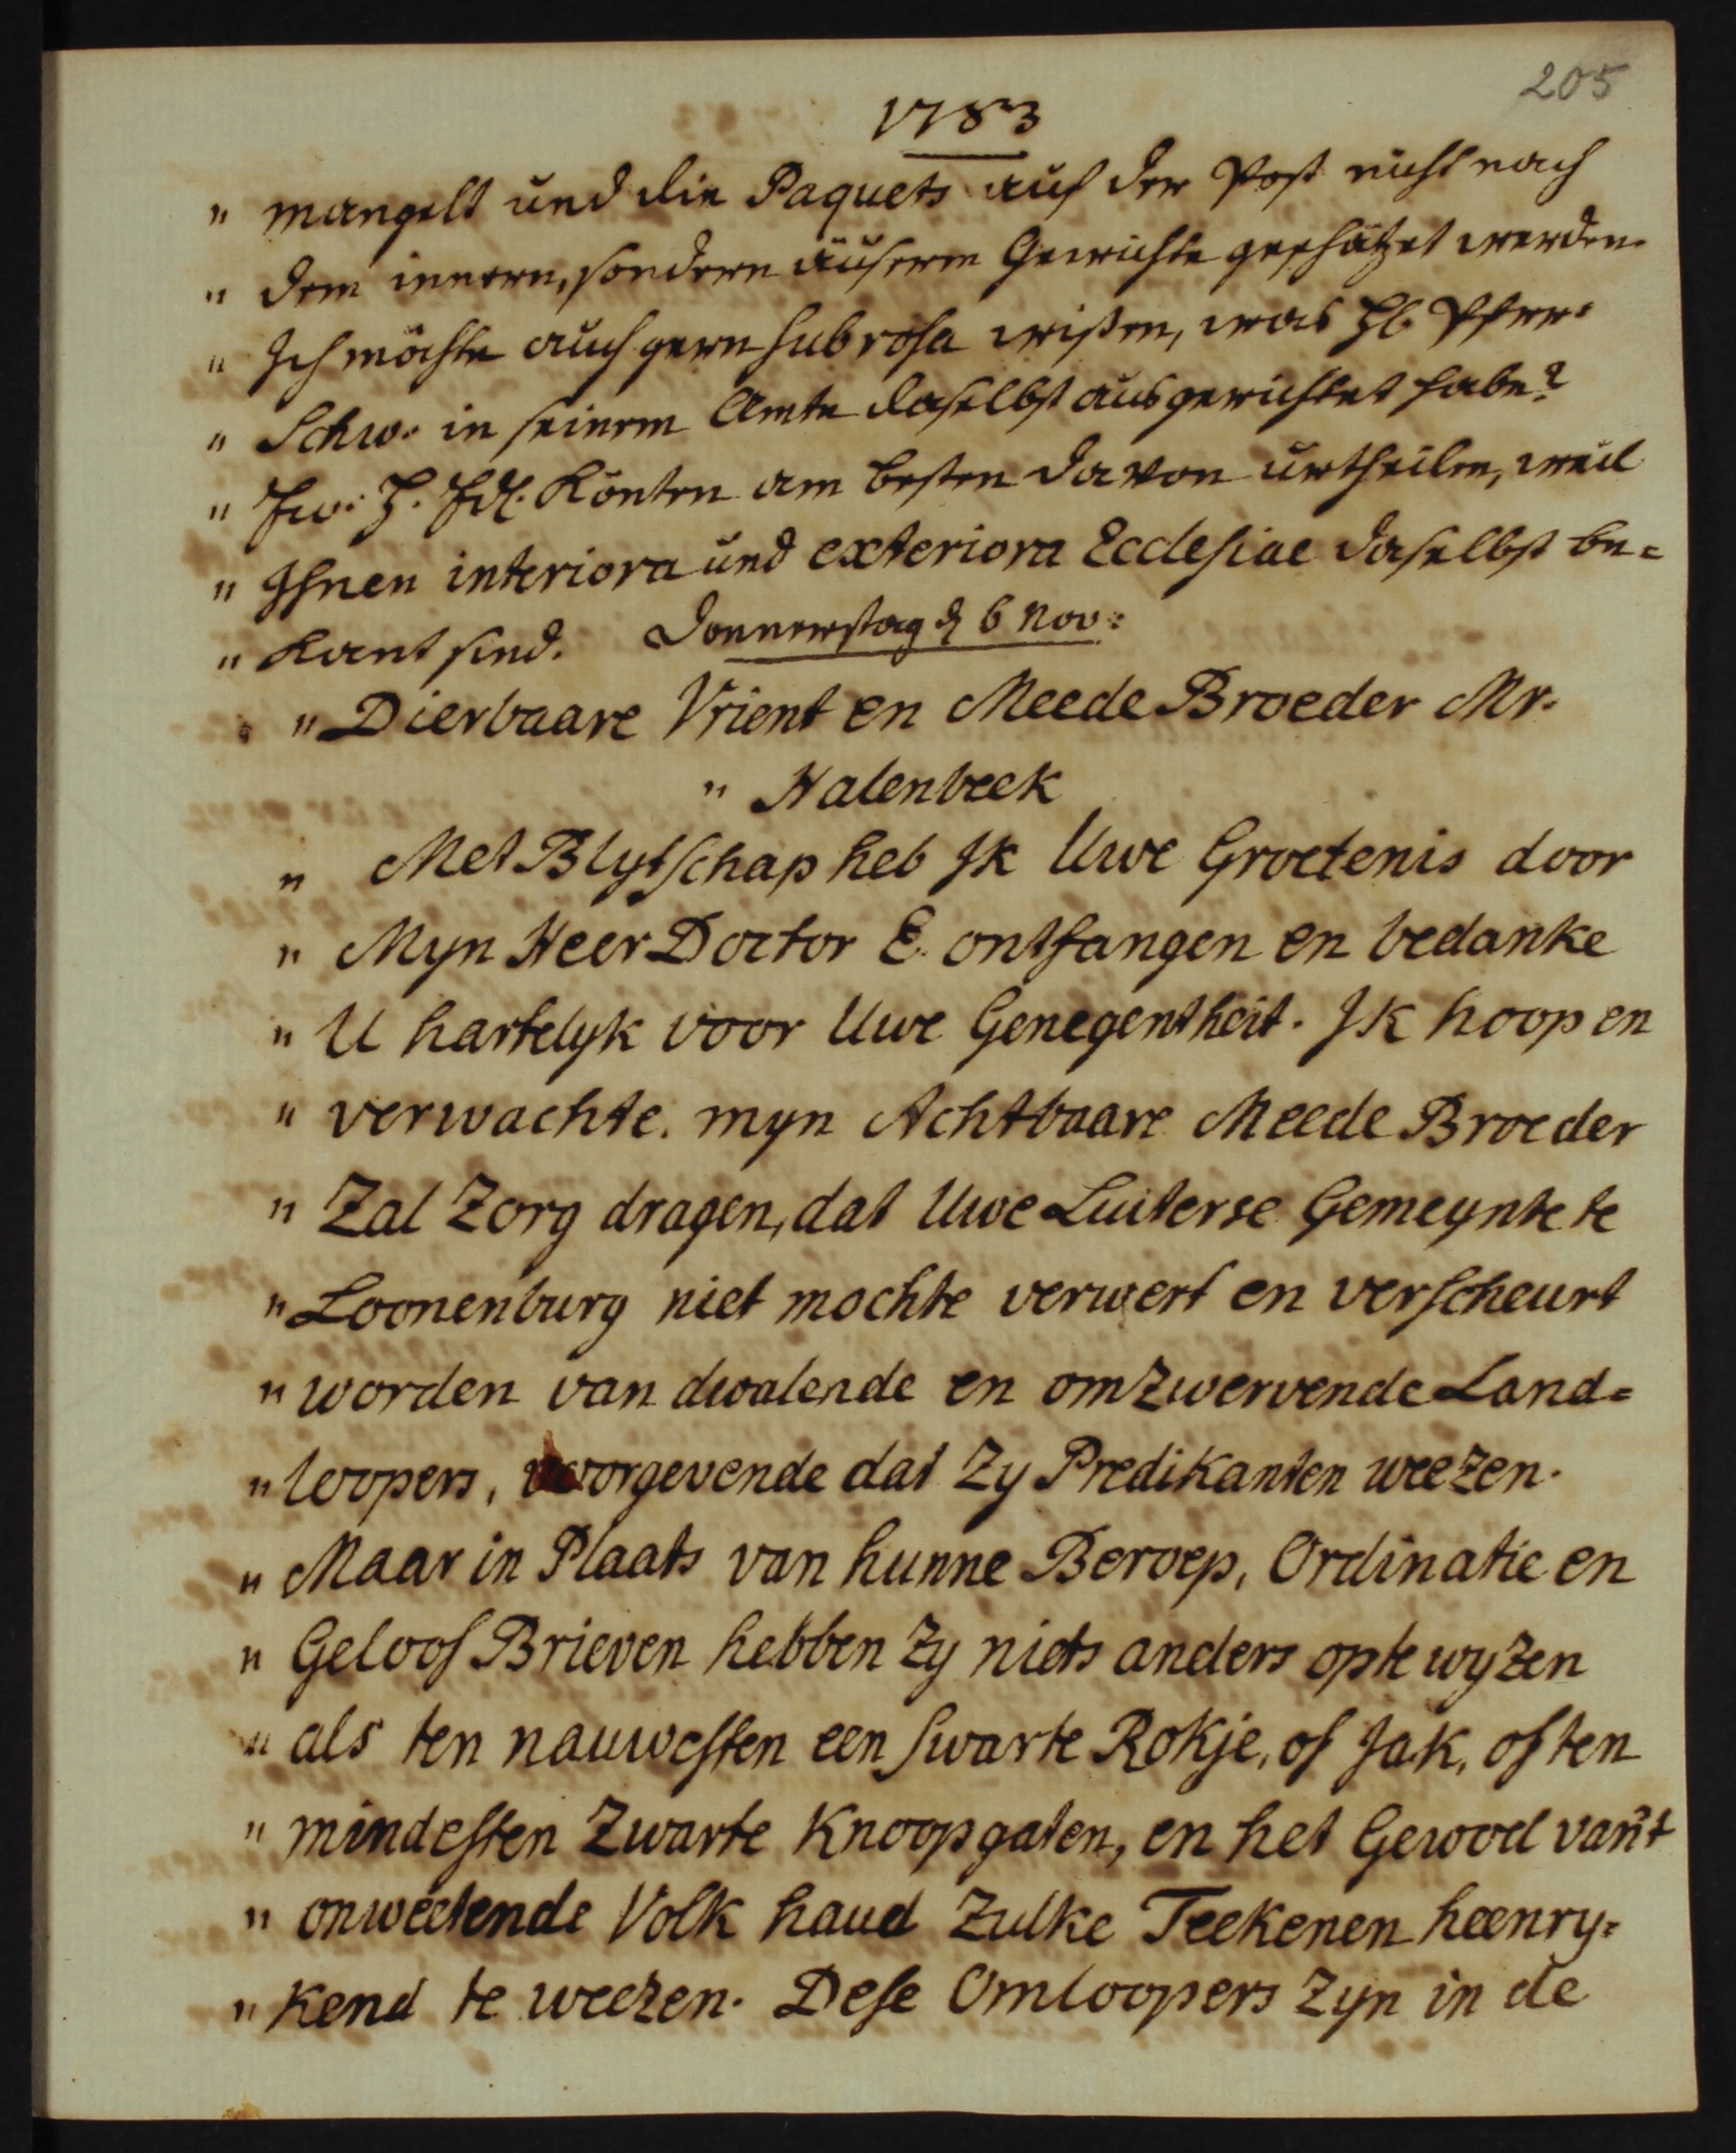 205
1783
" mangelt und die Paquets auf der Post nicht nach
" dem innern, sondern äuserm Gewichte geschätzet werden.
" Ich möchte auch gern sub rosa wißen, was H. Pfarr:
" Schw. in seinem Amte daselbst ausgerichtet habe?
" Ew: H. könten am besten davon urtheilen, weil
" Ihnen interiora und exteriora Ecclesiae daselbst be=
" kant sind. Donnerstag d 6 Nov:
" Dierbaare Vrient en Meede Broeder Mr.
" Halenbeek
" Met Blytschap heb Ik Uwe Groetenis door
" Myn Heer Doctor E. ontfangen en bedanke
" U hartelyk voor Uwe Genegentheit. Ik hoop en
" verwachte. myn Achtbaare Meede Broeder
" Zal Zorg dragen, dat Uwe Luiterse Gemeynte te
" Loonenburg niet mochte verwert en verscheurt
" worden van dwalende en omzwervende Land=
" loopers, voorgevende dat Zy Predikanten weezen.
" Maar in Plaats van hunne Beroep, Ordinatie en
" Geloof Brieven hebben Zy niets anders op te wyzen
" als ten nauwesten een swarte Rokje, of Jak, of ten
" mindesten Zwarte Knoopgaten, en het Gewoel van't
" onweetende Volk haud Zulke Teekenen heenry=
" kend te weezen. Dese Omloopers Zyn in de